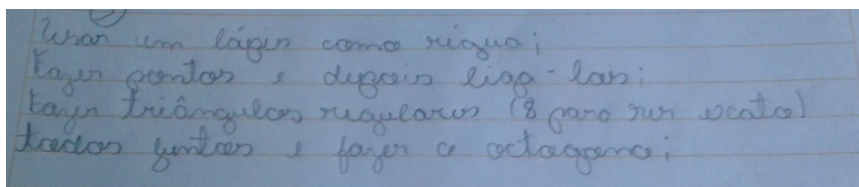 Usar um lápis como régua;
Fazer pontos e depois liga-las;
Fazer triângulos regulares (8 para ser exato)
todos juntos e fazer o octagono;